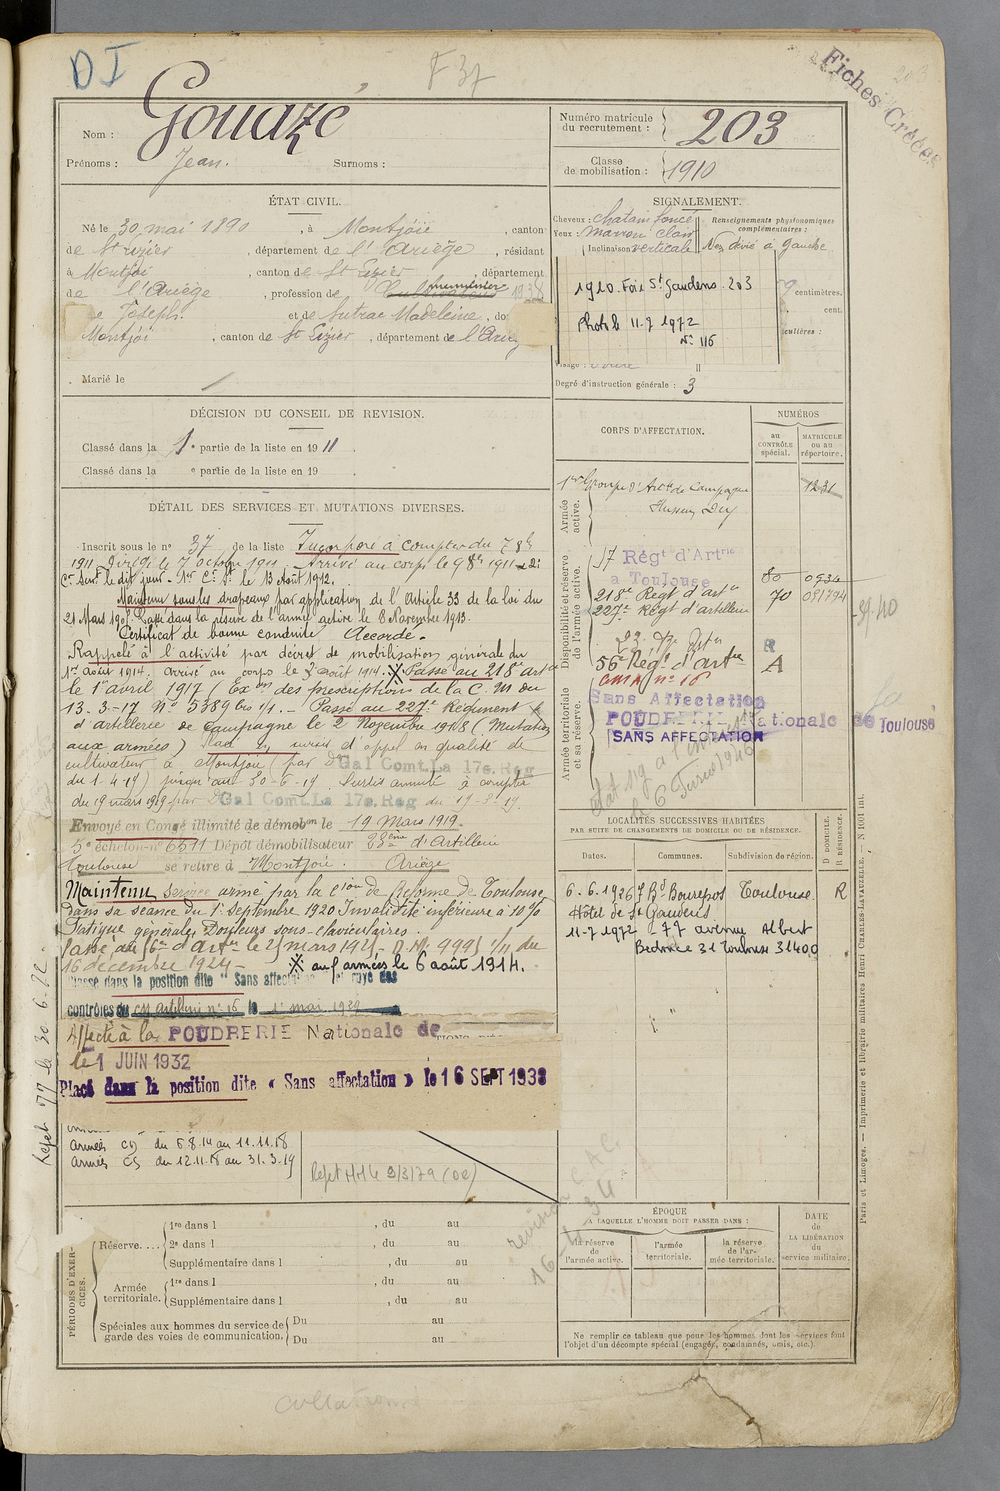 D I
F 37
Fiches Créées
203
Nom : Gouazé
Prénoms : Jean. Surnoms :
Numéro matricule du recrutement : 203
Classe de mobilisation : 1910
ÉTAT CIVIL.
Né le 30 mai 1890, à Montjoie, canton
de St Lizier, département de l'Ariège, résidant
à Montjoi, canton de St Lizier, département
de l'Ariège, profession de Cultivateur 1938
de Joseph et de Madeleine, do
Montjoi, canton de St Lizier, département de l'Arieg
Marié le
SIGNALEMENT.
Cheveux : chatain foncé
Yeux : marron clair
Inclinaison verticale
Renseignements physionomiques complémentaires :
Nez dévié à gauche
1910. Foix St Gaudens. 203
Photo le 11-7 1972
N° 116
centimètres.
cent.
culières :
Degré d'instruction générale : 3
DÉCISION DU CONSEIL DE REVISION.
Classé dans la 1e partie de la liste en 1911
Classé dans la e partie de la liste en 19
CORPS D'AFFECTATION.
NUMÉROS
au CONTRÔLE spécial.
MATRICULE ou au répertoire.
Armée active.
1er Groupe d'Artie de Campagne
Hussein Dey
1231
Disponibilité et réserve de l'armée active.
17 Régt d'Artrie
a Toulouse
218e Regt d'arte
227e Regt d'artillerie
80 0934
70 091794
56e Régt d'artie
A
CMA n° 16
Armée territoriale et sa réserve.
Sans Affectation
POUDRERIE Nationale de Toulouse
SANS AFFECTATION
6 Février 1946
DÉTAIL DES SERVICES ET MUTATIONS DIVERSES.
Inscrit sous le n° 37 de la liste Incorporé à compter du 7 8bre
1911. Dirigé le 7 octobre 1911. Arrivé au corps le 9 8bre 1911 2e
Cr Servt le dit jour. 1er Cr St le 13 Août 1912.
Maintenu sous les drapeaux par application de l'Article 33 de la loi du
21 Mars 1905. Passé dans la réserve de l'armée active le 8 Novembre 1913.
Certificat de bonne conduite Accordé.
Rappelé à l'activité par décret de mobilisation générale du
1er Août 1914. Arrivé au corps le 3 août 1914. ※ Passé au 218e arte
le 1er avril 1917 (Exon des prescriptions de la C. M du
13-3-17 N° 5389 bis 1/1. - Passé au 227e Régiment
d'artillerie de campagne le 2 Novembre 1918 (Mutation
aux armées) Placé en sursis d'appel en qualité de
cultivateur à Montjoie (par Don Gal Comt. La 17e. Reg
du 1-4-19) jusqu'au 30-6-19 Sursis annulé à compter
du 19 mars 1919 par Don Gal Comt. La 17e. Reg du 17-3-19.
Envoyé en Congé illimité de démobon le 19 Mars 1919.
5e échelon n° 6511 Dépôt démobilisateur 23ème d'Artillerie
Toulouse se retire à Montjoie. Ariège.
Maintenu service armé par la Cion de Réforme de Toulouse
dans sa séance du 1er septembre 1920 Invalidité inférieure à 10 %
Fatigue générale, Douleurs sous-claviculaires.
16 décembre 1924 - ※ aux armées le 6 août 1914.
Classé dans la position dite " Sans affectation
contrôles du CM artillerie n° 16 le 1er mai 1929
Affecté à la POUDRERIE Nationale de
le 1 JUIN 1932
Placé dans la position dite « Sans affectation » le 16 SEPT 1938
Armées CD du 6.8.14 au 11.11.18
Armées CS du 12.11.18 au 31.3.19
LOCALITÉS SUCCESSIVES HABITÉES
PAR SUITE DE CHANGEMENTS DE DOMICILE OU DE RÉSIDENCE.
Dates. Communes. Subdivision de région. D. DOMICILE. R. RÉSIDENCE.
6.6.1926 7 Bd Bourepos Toulouse R
Hôtel de St Gaudens
11-7 1972 77 avenue Albert
Bedouce 31 Toulouse 31400
ÉPOQUE
A LAQUELLE L'HOMME DOIT PASSER DANS :
la réserve de l'armée active.
l'armée territoriale.
la réserve de l'armée territoriale.
DATE de LA LIBÉRATION du service militaire.
PÉRIODES D'EXERCICES.
Réserve.... 1re dans l , du au
2e dans l , du au
Supplémentaire dans l , du au
Armée territoriale. 1re dans l , du au
Supplémentaire dans l , du au
Spéciales aux hommes du service de garde des voies de communication. Du au
Du au
Ne remplir ce tableau que pour les hommes dont les services font
l'objet d'un décompte spécial (engagés, condamnés, omis, etc.).
Paris et Limoges. — Imprimerie et librairie militaires Henri CHARLES-LAVAUZELLE. — N 1071 int.